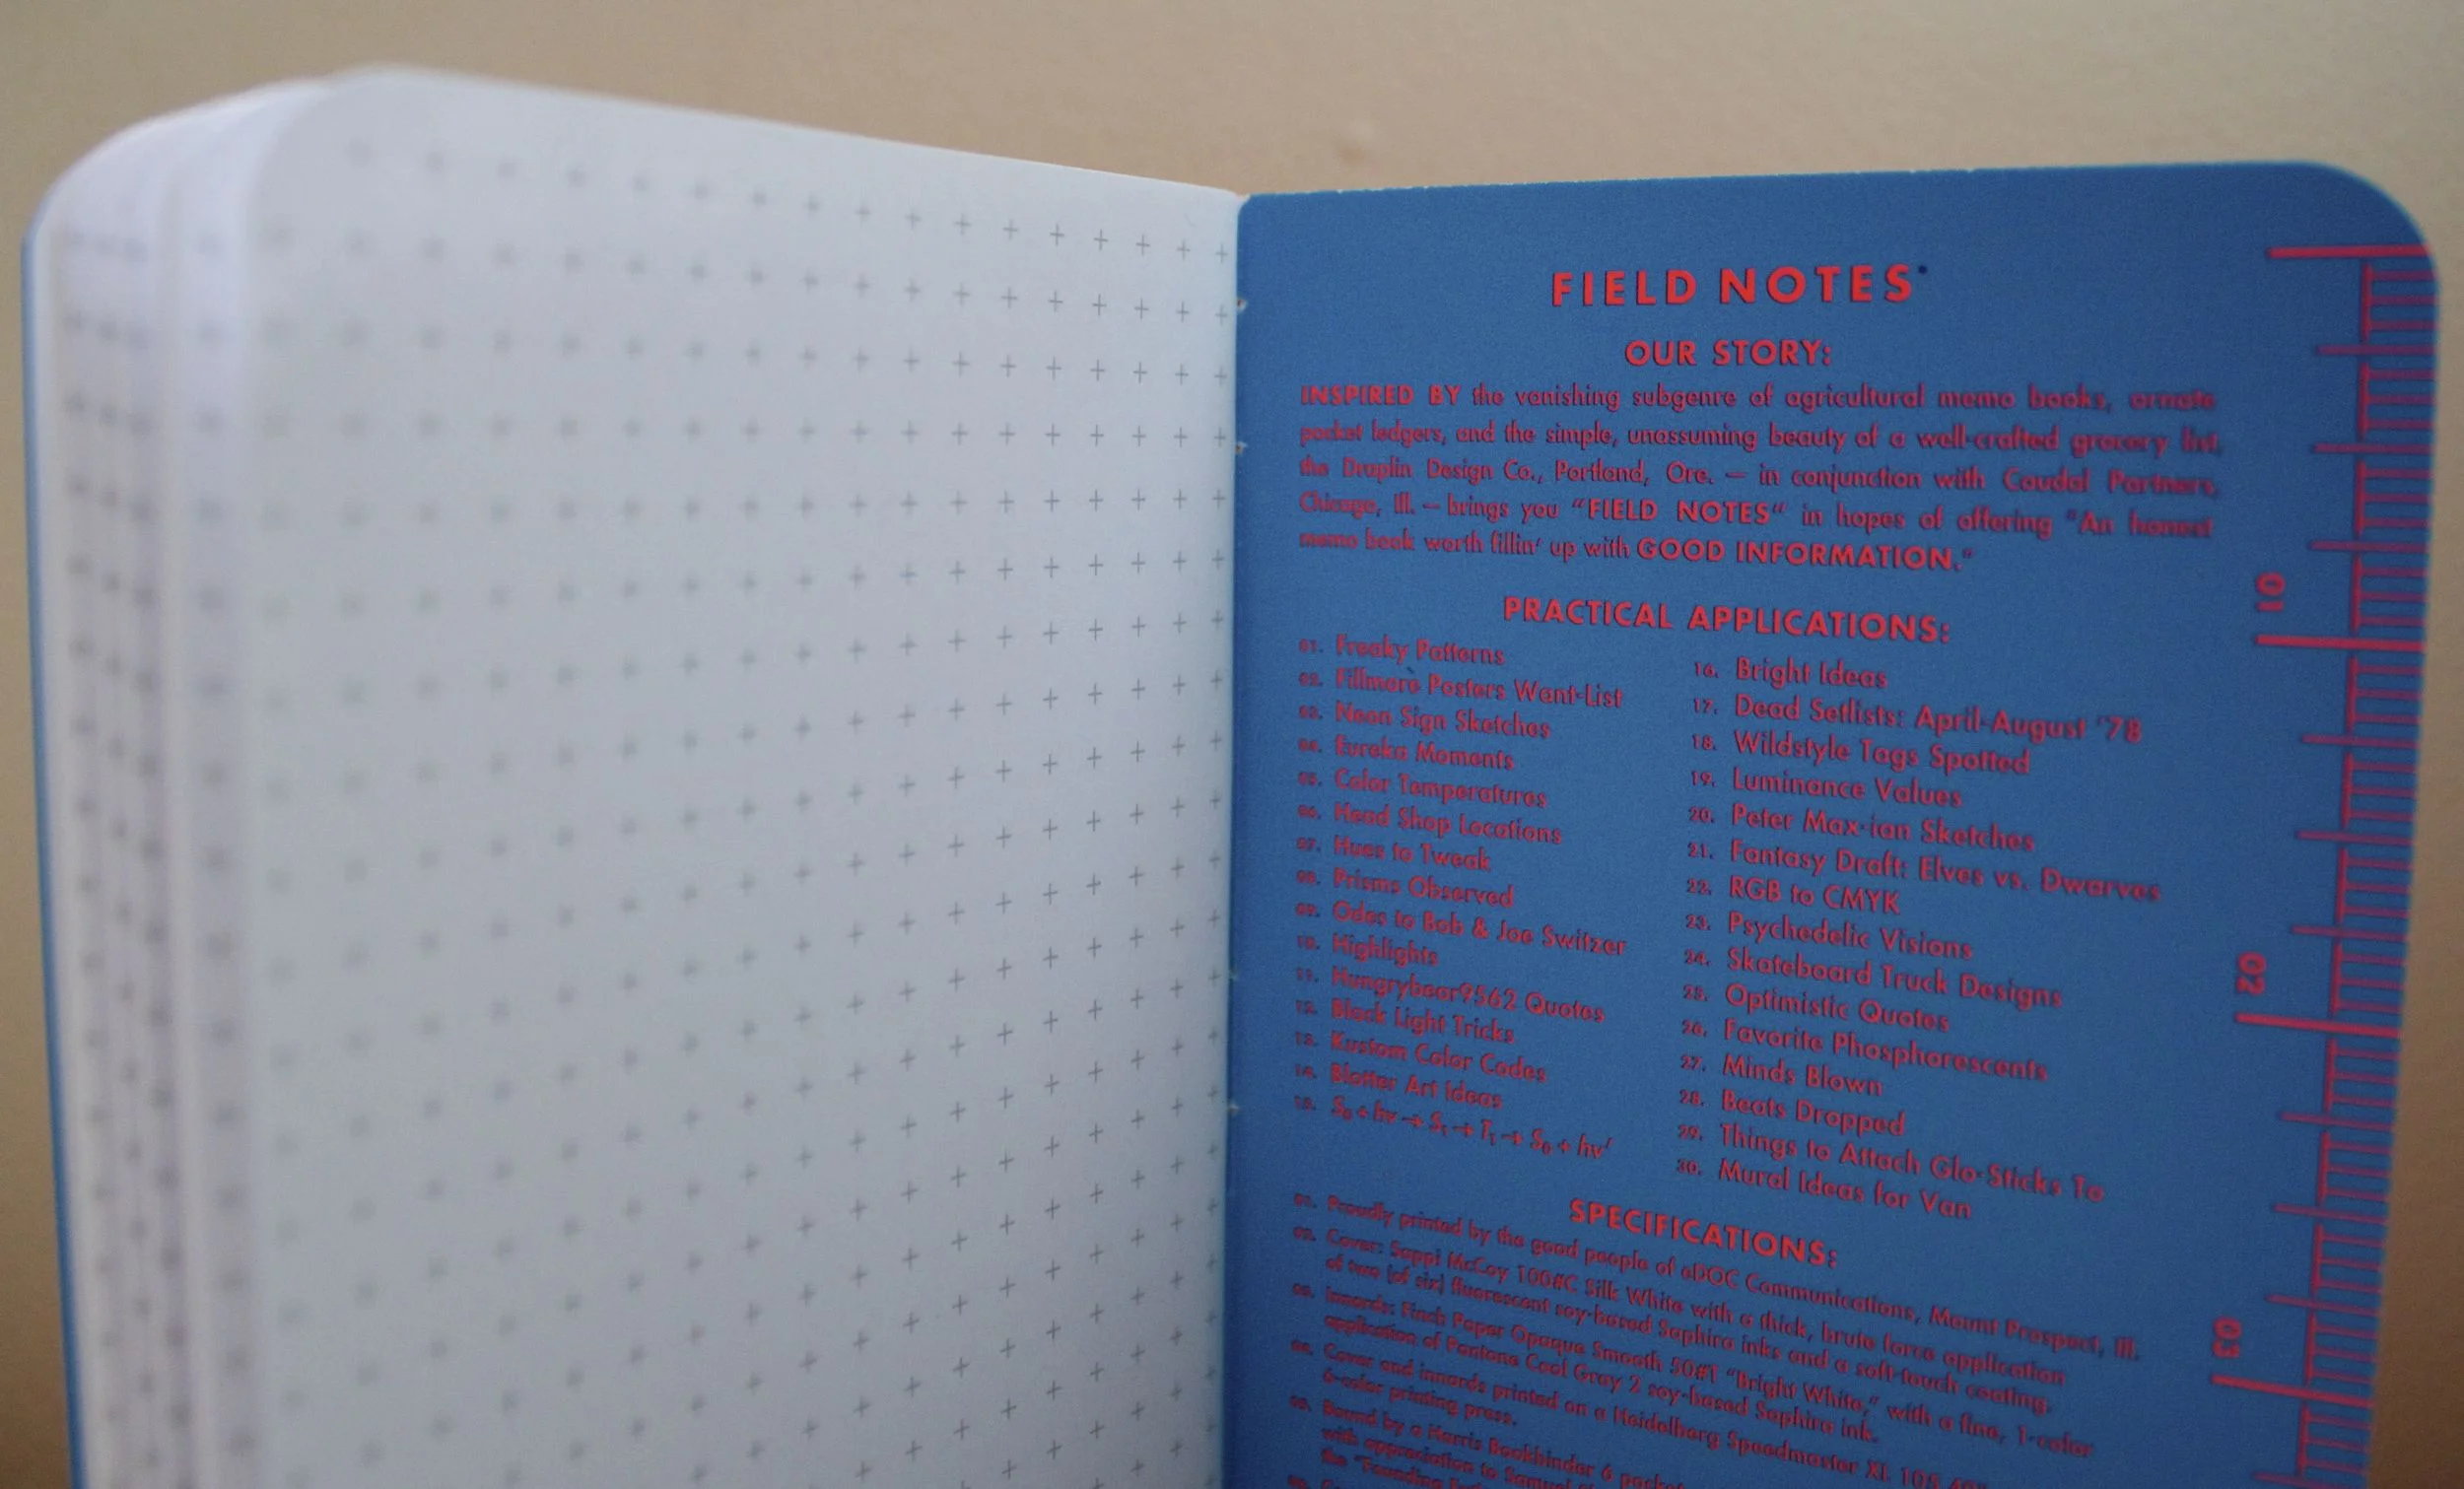 FIELD NOTES
OUR STORY:
INSPIRED BY the vanishing subgenre of agricultural memo books, ornate
pocket ledgers, and the simple, unassuming beauty of a well-crafted grocery list,
the Draplin Design Co., Portland, Ore. — in conjunction with Coudal Partners,
Chicago, Ill. — brings you "FIELD NOTES" in hopes of offering "An honest
memo book worth fillin' up with GOOD INFORMATION."
PRACTICAL APPLICATIONS:
01. Freaky Patterns
02. Fillmore Posters Want-List
03. Neon Sign Sketches
04. Eureka Moments
05. Color Temperatures
06. Head Shop Locations
07. Hues to Tweak
08. Prisms Observed
09. Odes to Bob & Joe Switzer
10. Highlights
11. Hungrybear9562 Quotes
12. Black Light Tricks
13. Kustom Color Codes
14. Blotter Art Ideas
15. S₀ + hv → S₁ → T₁ → S₀ + hv′
16. Bright Ideas
17. Dead Setlists: April-August '78
18. Wildstyle Tags Spotted
19. Luminance Values
20. Peter Max-ian Sketches
21. Fantasy Draft: Elves vs. Dwarves
22. RGB to CMYK
23. Psychedelic Visions
24. Skateboard Truck Designs
25. Optimistic Quotes
26. Favorite Phosphorescents
27. Minds Blown
28. Beats Dropped
29. Things to Attach Glo-Sticks To
30. Mural Ideas for Van
SPECIFICATIONS:
01. Proudly printed by the good people of eDOC Communications, Mount Prospect, Ill.
02. Cover: Sappi McCoy 100#C Silk White with a thick, brute force application
of two (of six) fluorescent soy-based Saphira inks and a soft-touch coating.
03. Innards: Finch Paper Opaque Smooth 50#T "Bright White," with a fine, 1-color
application of Pantone Cool Gray 2 soy-based Saphira ink.
04. Cover and innards printed on a Heidelberg Speedmaster XL 105
6-color printing press.
05. Bound by a Harris Bookbinder 6 pocket
with appreciation to Samuel
the "Founding
01
02
03